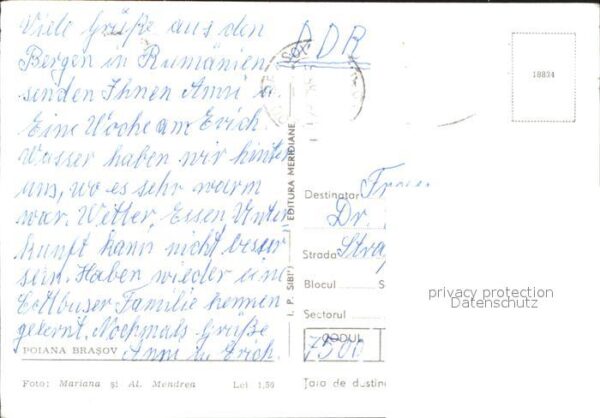 Viele Grüße aus den
Bergen in Rumänien
senden Ihnen Anni u.
Eine Woche am
Wasser haben wir hinter
uns, wo es sehr warm
war. Wetter, Essen Unter
kunft kann nicht besser
sein. Haben wieder eine
Cottbuser Familie kennen
gelernt. Nochmals Grüße
Anni u Erich.
POIANA BRAȘOV
Foto: Mariana și Al. Mendrea Lei 1,50
I. P. SIBIU EDITURA MERIDIANE
DDR
18824
Destinatar Frau
Dr.
Strada
Blocul S
Sectorul
CODUL 7500
Taxa de destin
privacy protection
Datenschutz